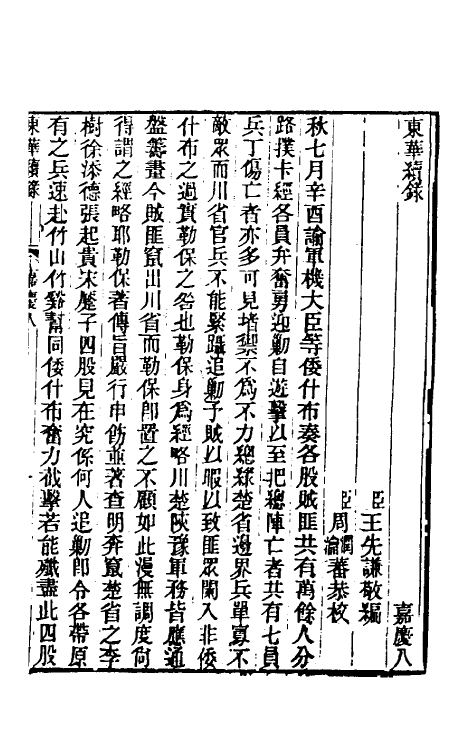 東華續錄 嘉慶八
臣王先謙敬編
臣周潤蕃周瀹蕃恭校
秋七月辛酉諭軍機大臣等倭什布奏各股賊匪共有萬餘人分
路撲卡經各員弁奮勇迎勦自遊擊以至把總陣亡者共有七員
兵丁傷亡者亦多可見堵禦不為不力總緣楚省邊界兵單寡不
敵眾而川省官兵不能緊躡追勦予賊以暇以致匪眾闌入非倭
什布之過實勒保之咎也勒保身為經略川楚陝豫軍務皆應通
盤籌畫今賊匪竄出川省而勒保即置之不顧如此漫無調度何
得謂之經略耶勒保著傳旨嚴行申飭並著查明奔竄楚省之李
樹徐添德張起貴宋麻子四股見在究係何人追勦即令各帶原
有之兵速赴竹山竹谿幫同倭什布奮力截擊若能殲盡此四股
東華續錄 嘉慶八 一